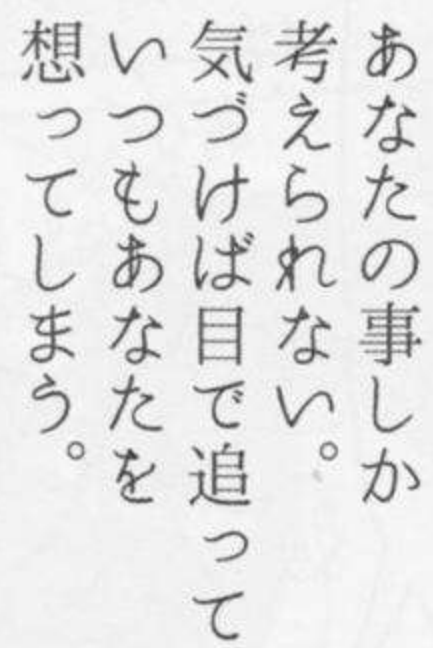 あなたの事しか
考えられない。
気づけば目で追って
いつもあなたを
想ってしまう。